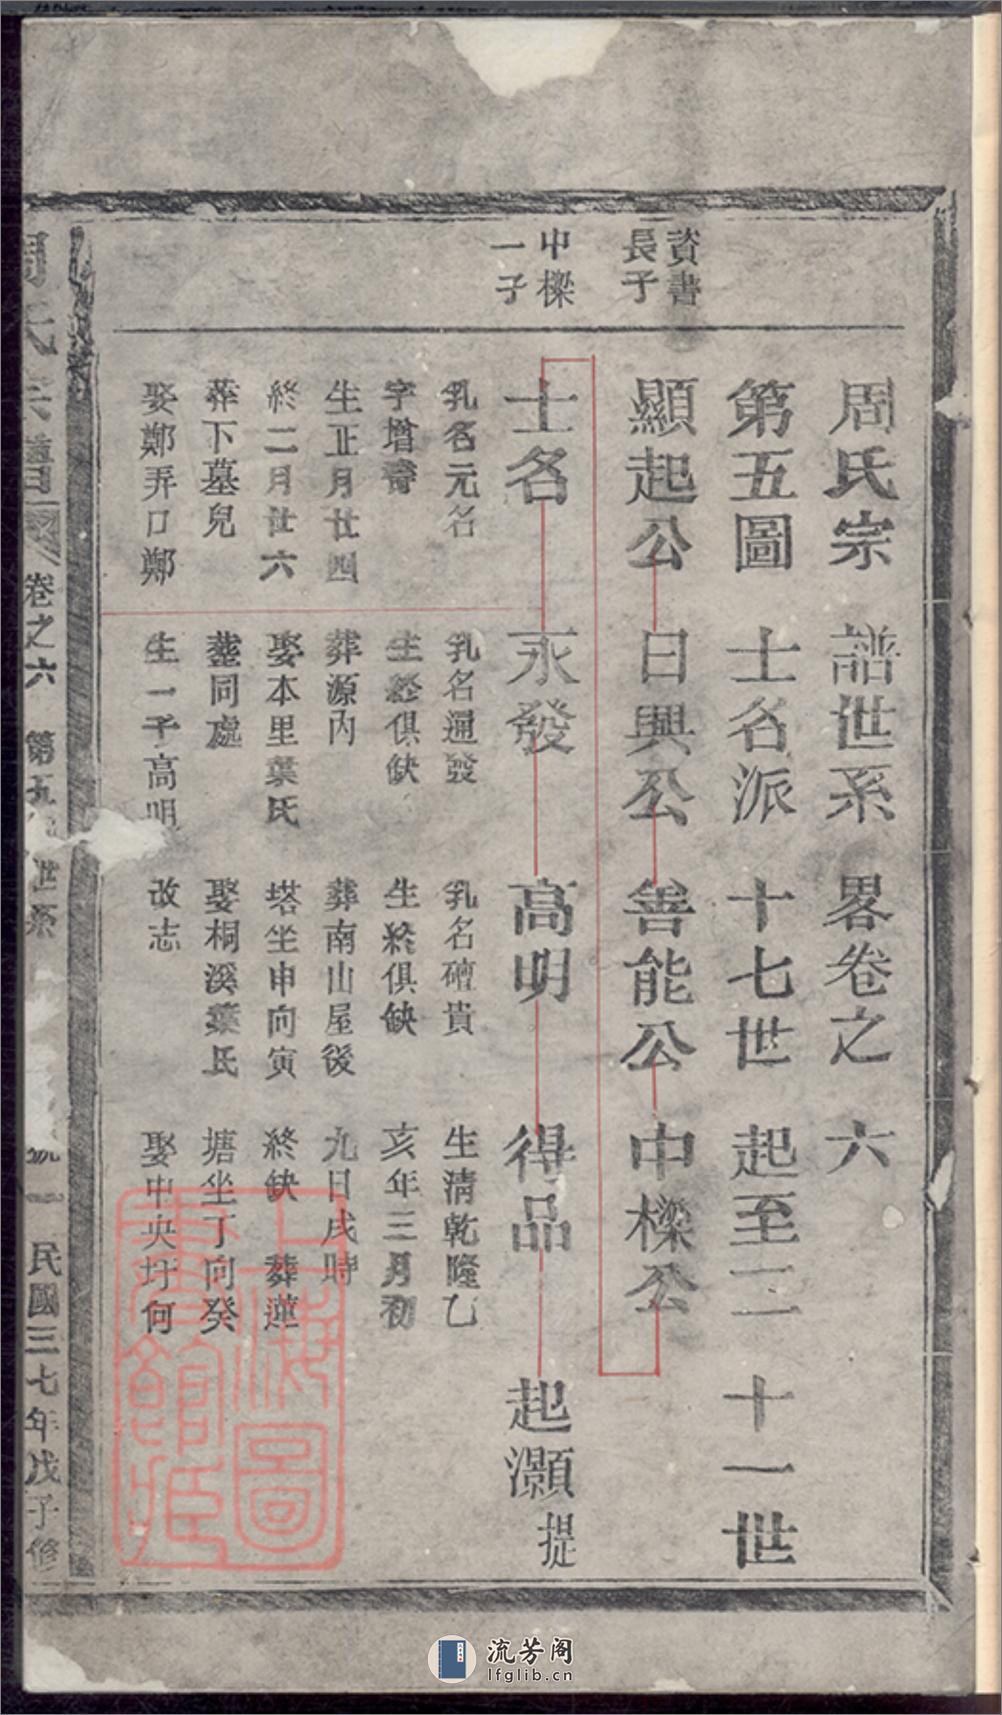 周氏宗譜世系畧卷之六
第五圖 士名派 十七世起至二十一世
資書
長子
顯起公 日興公 善能公 中樑公
中樑
一子
士名 永發 高明 得品 起灝 提
乳名元名
字增壽
生正月廿四
終二月廿六
葬下墓兒
娶鄭弄口鄭
乳名通發
生終俱缺
葬源內
娶本里葉氏
塟同處
生一子高明
乳名礶貴
生終俱缺
葬南山屋後
塔坐申向寅
娶桐溪葉氏
改志
生清乾隆乙
亥年三月初
九日戌時
終缺 葬蓮
塘坐丁向癸
娶中央圩何
周氏宗譜 卷之六 第五 世系 民國三七年戊子修
上海圖書館藏
流芳阁
lfglib.cn